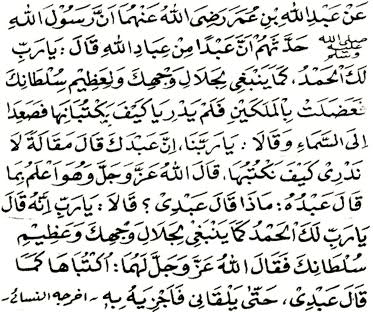 عَنْ عَبْدِ اللّٰهِ بْنِ عُمَرَ رَضِیَ اللّٰهُ عَنْهُمَا اَنَّ رَسُوْلَ اللّٰهِ
ﷺ حَدَّثَهُمْ اَنَّ عَبْدًا مِنْ عِبَادِ اللّٰهِ قَالَ : يَارَبِّ
لَكَ الْحَمْدُ، كَمَا يَنْبَغِىْ لِجَلَالِ وَجْهِكَ وَلِعَظِيْمِ سُلْطَانِكَ
فَعَضَلَتْ بِالْمَلَكَيْنِ فَلَمْ يَدْرِيَا كَيْفَ يَكْتُبَانِهَا فَصَعِدَا
اِلَى السَّمَاءِ وَقَالَا : يَارَبَّنَا، اِنَّ عَبْدَكَ قَالَ مَقَالَةً لَا
نَدْرِىْ كَيْفَ نَكْتُبُهَا، قَالَ اللّٰهُ عَزَّ وَجَلَّ وَهُوَ اَعْلَمُ بِمَا
قَالَ عَبْدُهُ : مَاذَا قَالَ عَبْدِىْ ؟ قَالَا : يَارَبِّ اِنَّهُ قَالَ
يَارَبِّ لَكَ الْحَمْدُ كَمَا يَنْبَغِىْ لِجَلَالِ وَجْهِكَ وَعَظِيْمِ
سُلْطَانِكَ فَقَالَ اللّٰهُ عَزَّ وَجَلَّ لَهُمَا : اُكْتُبَاهَا كَمَا
قَالَ عَبْدِىْ، حَتّٰى يَلْقَانِىْ فَاَجْزِيَهُ بِهٖ - اخرجه النسائى -